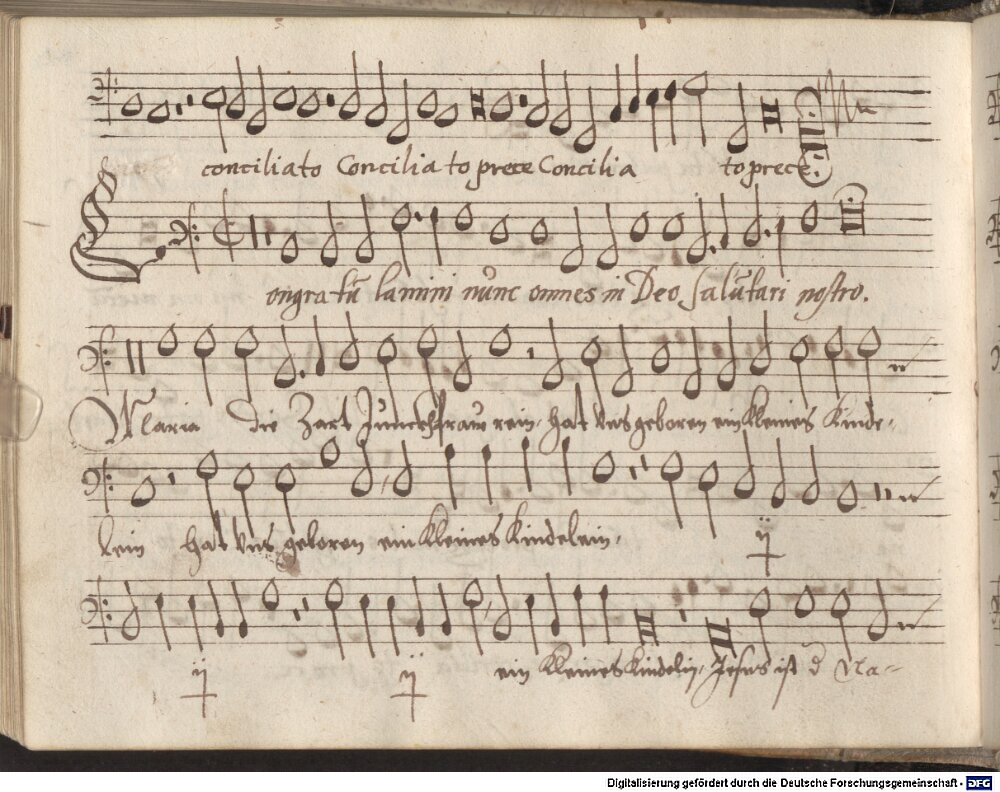 conciliato Concilia to prece Concilia to prece.
Congratulamini nunc omnes in Deo salutari nostro.
Maria die Zart Junckfraw rein, hat Uns geboren ein kleines Kinde-
lein hat Uns geboren ein kleines Kindelein, ij
ij ij ein kleines kindelin, Jesus ist d Na-
Digitalisierung gefördert durch die Deutsche Forschungsgemeinschaft - DFG